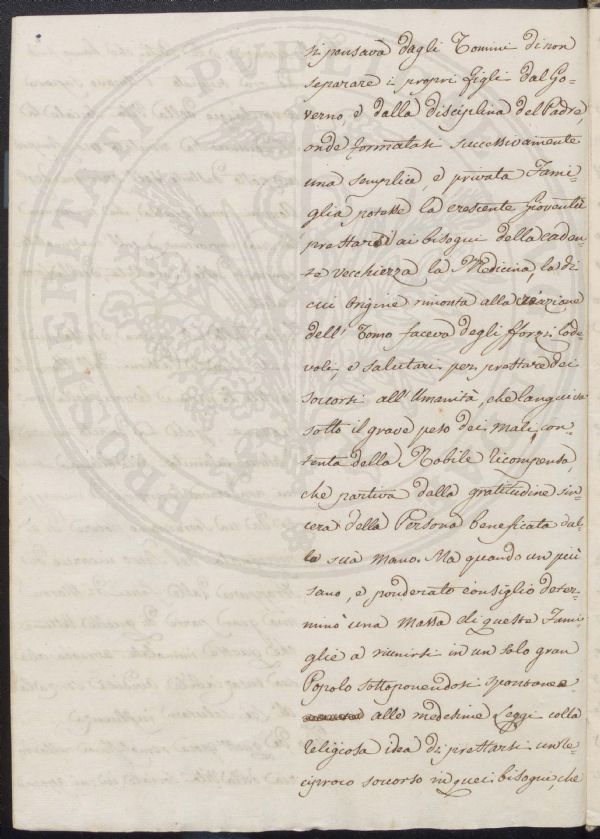 si pensava dagli Uomini di non
separare i propri figli dal Go-
verno, e dalla disciplina del Padre
onde formatasi successivamente
una semplice, e privata Fami-
glia potesse la crescente Gioventù
prestarsi ai bisogni della caden-
te vecchiezza la Medicina, la di
cui origine rimonta alla creazione
dell' Uomo faceva degli sforzi lode-
voli, e salutari per prestare dei
soccorsi all' Umanità, che languiva
sotto il grave peso dei mali, con-
tenta della Nobile ricompensa,
che partiva dalla gratitudine sin-
cera della Persona beneficata dal-
la sua mano. Ma quando un più
sano, e ponderato consiglio deter-
minò una Massa di queste Fami-
glie a riunirsi in un solo gran
Popolo sottoponendosi spontanee
alle medesime Leggi colla
religiosa idea di prestarsi un re-
ciproco soccorso in quei bisogni, che
PROSPERITATI PUBL